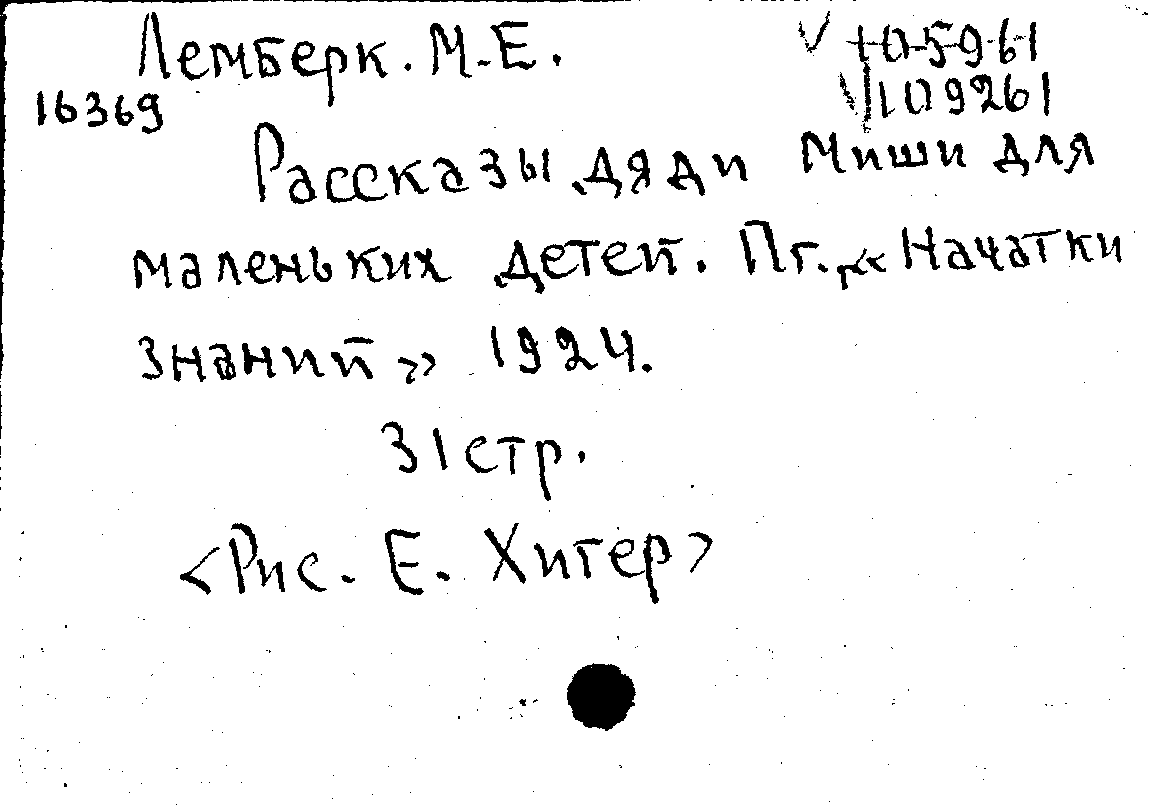 Лемберк. М-Е. √ 10-5961
16369 √ 109261
Рассказы дяди Миши для
маленьких детей. Пг., «Начатки
знаний» 1924.
31 стр.
<Рис. Е. Хигер>